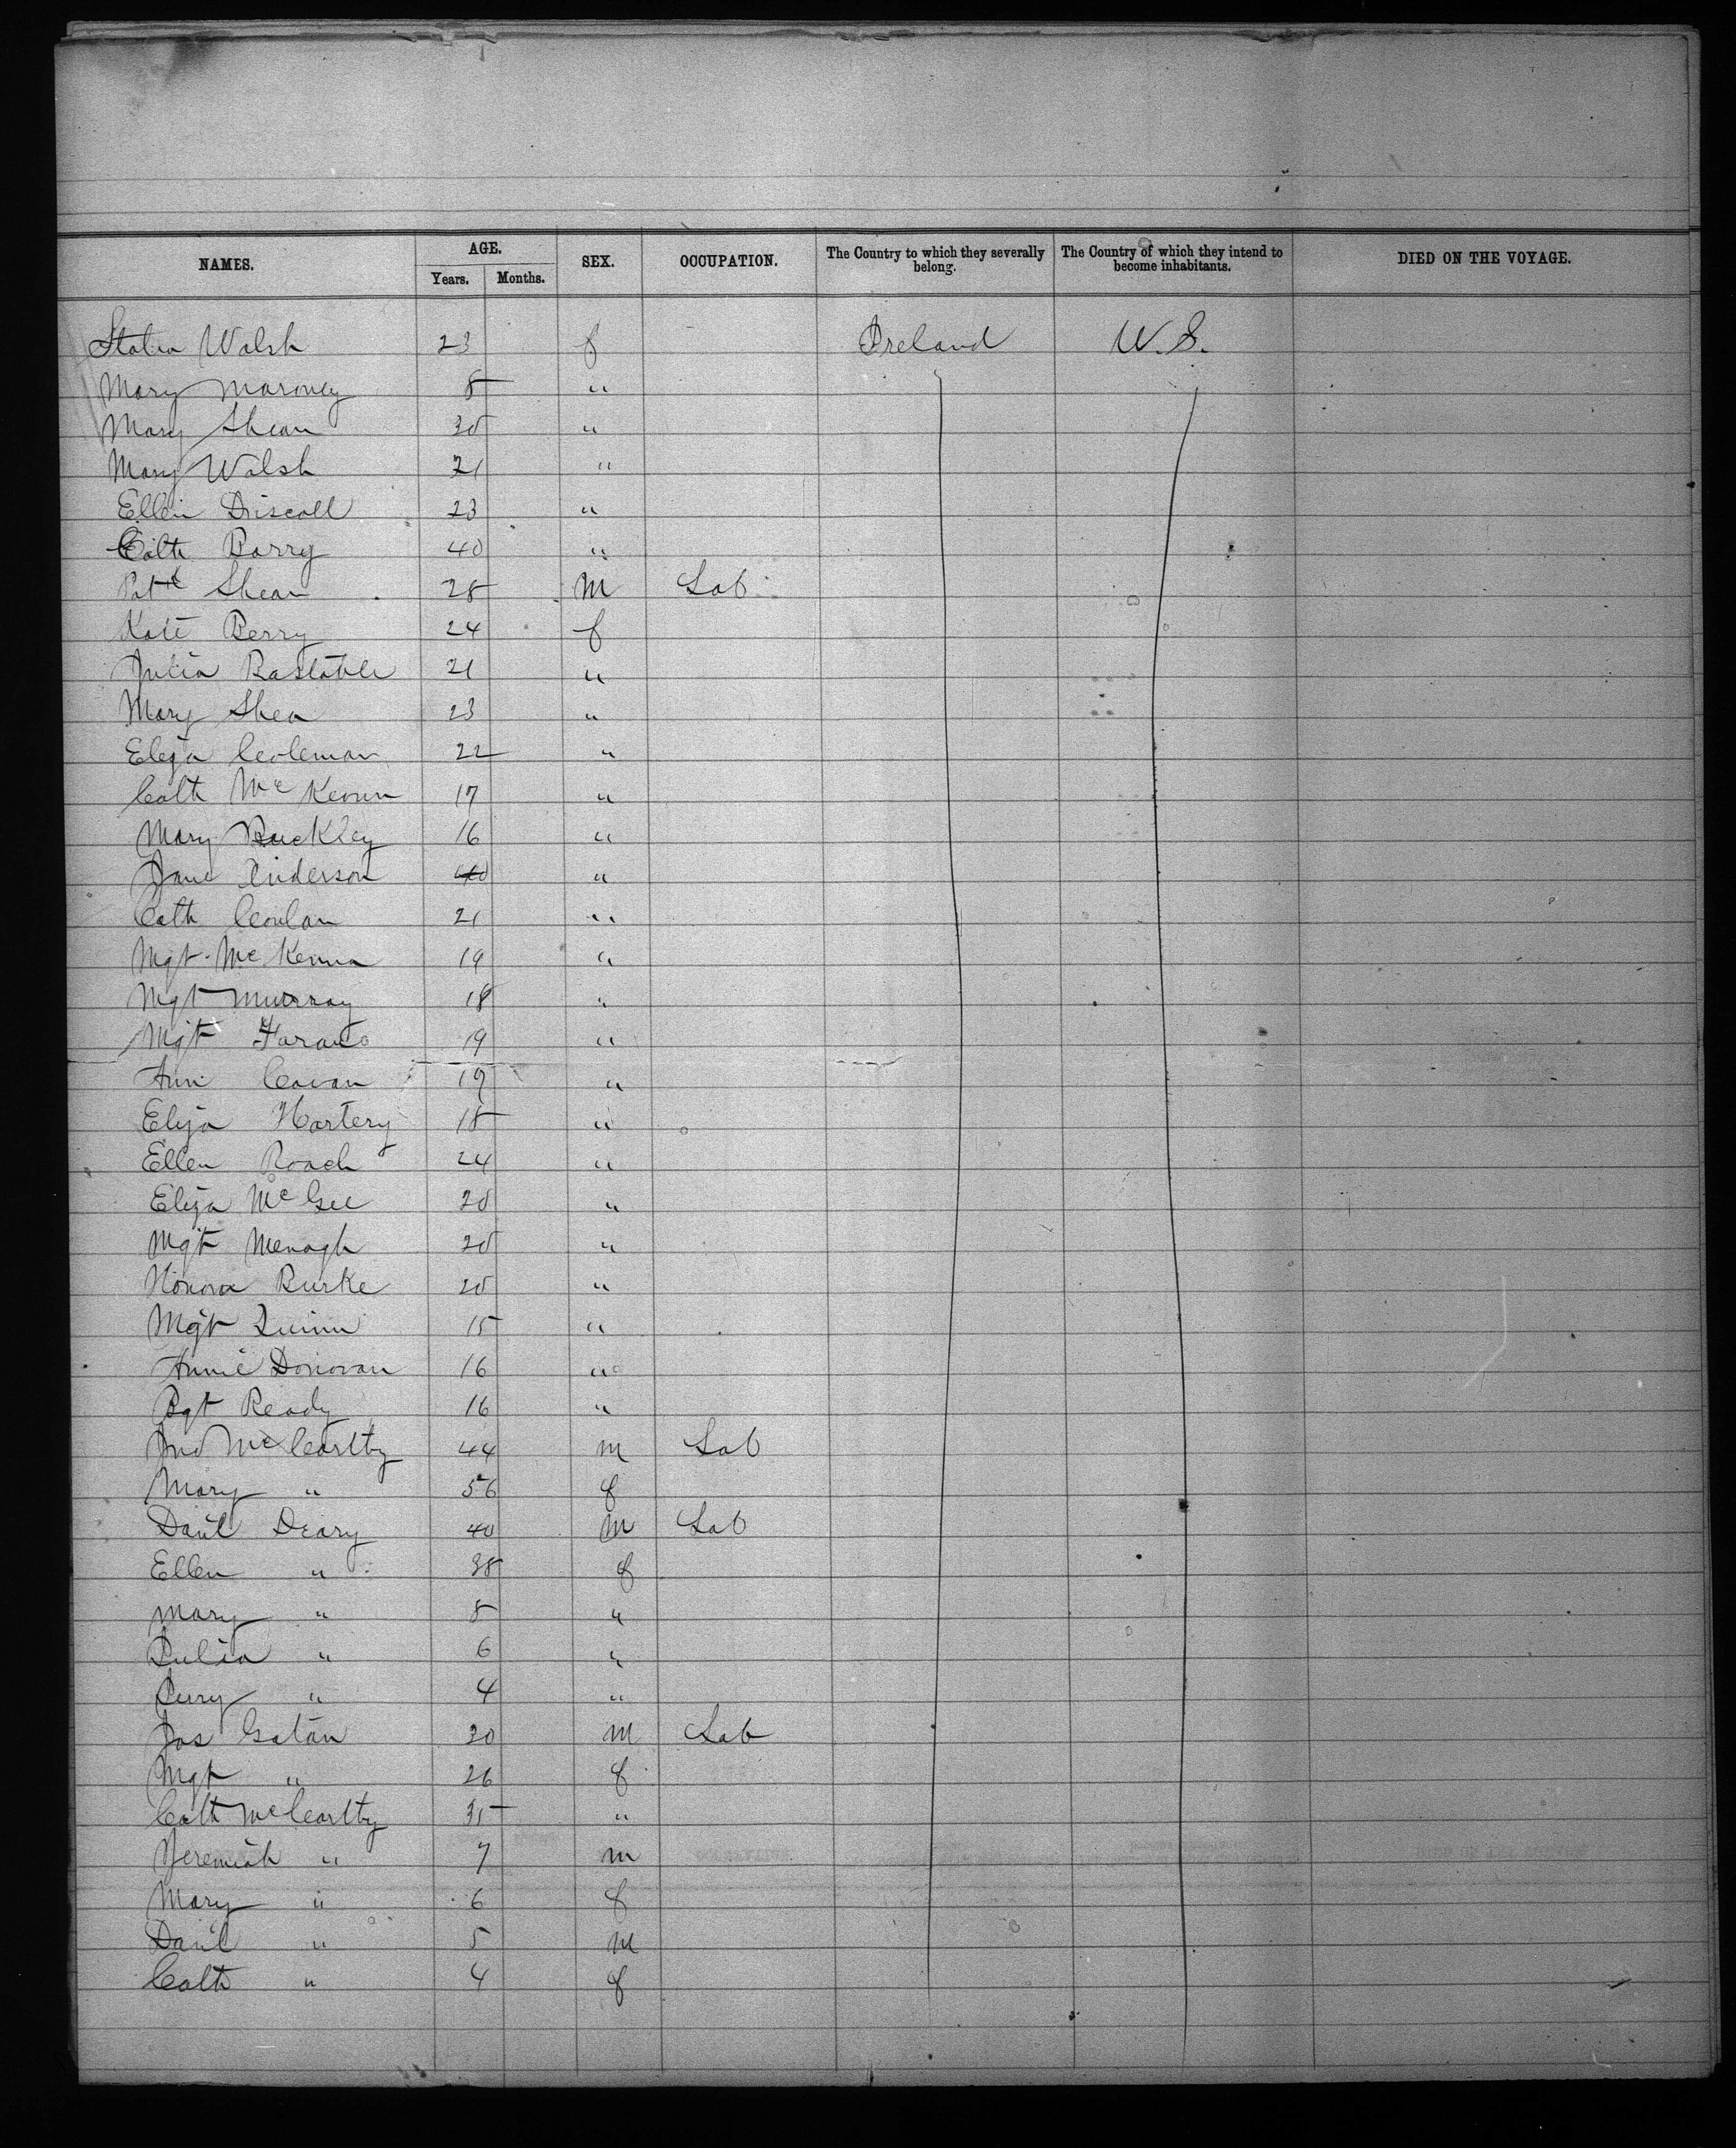 NAMES. AGE. SEX. OCCUPATION. The Country to which they severally belong. The Country of which they intend to become inhabitants. DIED ON THE VOYAGE.
Years. Months.
Statia Walsh 23 f Ireland U.S.
Mary Maroney 8 "
Mary Shean 30 "
Mary Walsh 21 "
Ellen Driscoll 23 "
Cath Barry 40 "
Patk Shean 28 M Lab
Kate Berry 24 f
Julia Bastable 21 "
Mary Shea 23 "
Eliza Coleman 22 "
Cath McKeown 17 "
Mary Buckley 16 "
Jane Anderson 40 "
Cath Conlan 21 "
Mgt McKenna 19 "
Mgt Murray 18 "
Mgt 19 "
Ann Cavan 19 "
Eliza Hartery 18 "
Ellen Roach 24 "
Eliza McGee 20 "
Mgt Menagh 20 "
Honora Burke 20 "
Mgt Quinn 15 "
Annie Donovan 16 "
Bgt Ready 16 "
Jno McCarthy 44 m Lab
Mary " 56 f
Danl Deary 40 m Lab
Ellen " 38 f
Mary " 8 "
Julia " 6 "
" 4 "
Jas Gatan 20 m Lab
Mgt " 26 f
Cath McCarthy 35 "
Jeremiah " 7 m
Mary " 6 f
Danl " 5 m
Cath " 4 f